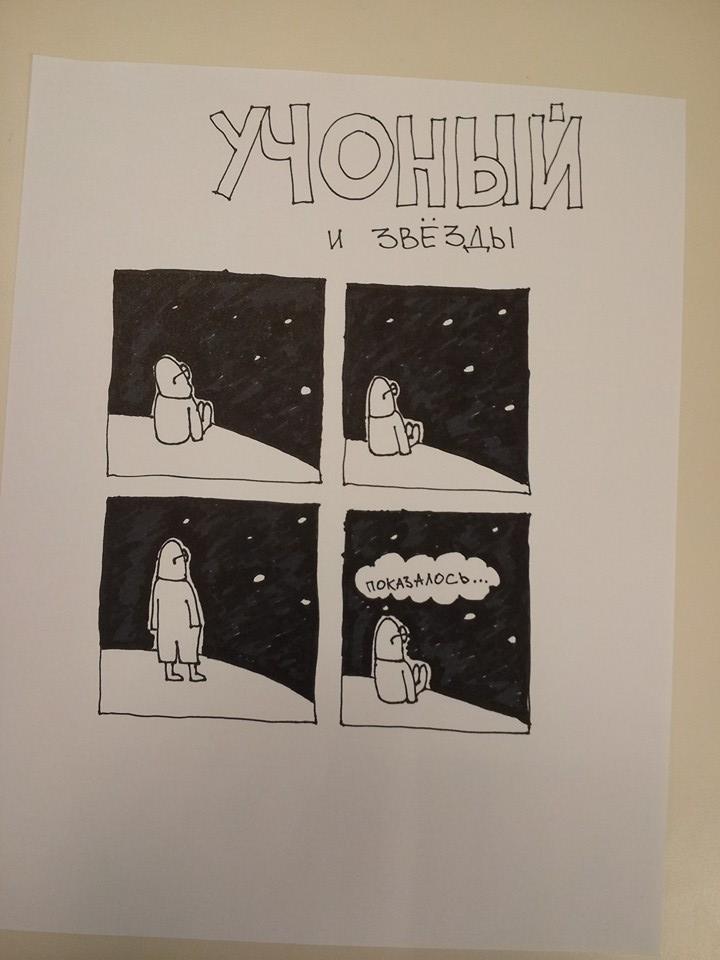 УЧОНЫЙ
И ЗВЁЗДЫ
ПОКАЗАЛОСЬ...